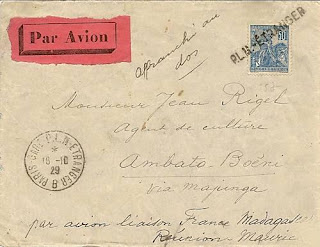 Par Avion
affranchi au
dos
PLM-ÉTRANGER
50
Monsieur Jean Rigel
Agent de culture
Ambato-Boéni
via majunga
PARIS GARE P.L.M-ETRANGER B
*
16-10
29
par avion liaison France Madagascar
Réunion Maurice